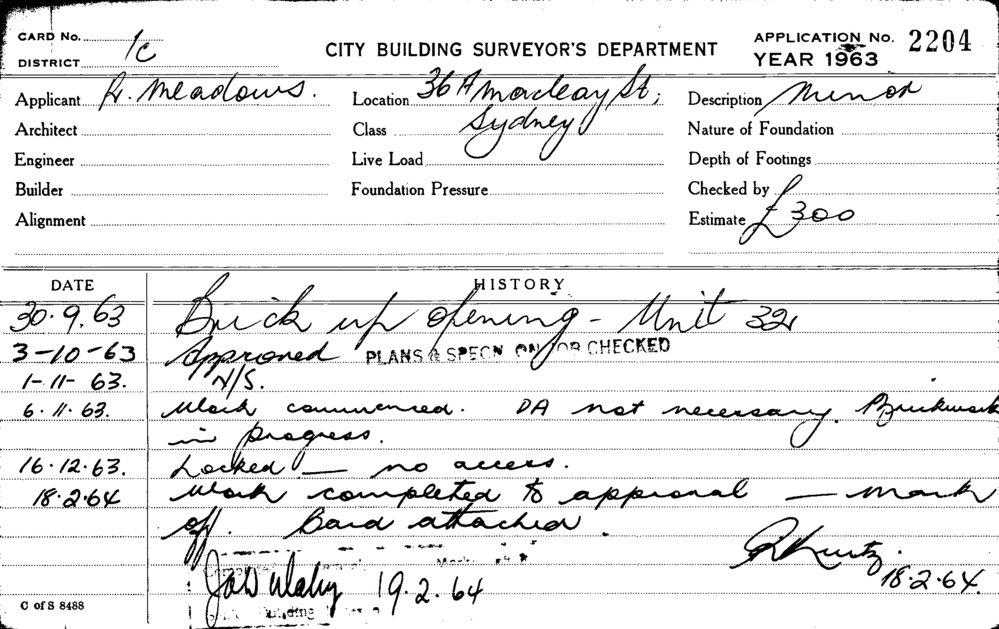 CARD No. 1c
DISTRICT
CITY BUILDING SURVEYOR'S DEPARTMENT
APPLICATION No. 2204
YEAR 1963
Applicant R. Meadows.
Location 36A Macleay St,
Description Minor
Architect
Class Sydney
Nature of Foundation
Engineer
Live Load
Depth of Footings
Builder
Foundation Pressure
Checked by
Alignment
Estimate £300
DATE HISTORY
30.9.63 Brick up opening - Unit 32
3-10-63 Approved PLANS & SPECN ONLY CHECKED
1-11-63. N/S.
6.11.63. Work commenced. DA not necessary. Brickwork
in progress.
16.12.63. Locked - no access.
18.2.64 Work completed to approval - mark
off. Card attached.
R Kurtz.
18.2.64.
19.2.64
C of S 8488